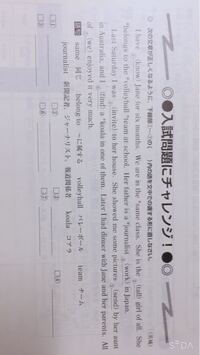 ◎●入試問題にチャレンジ！●◎
次の文章が正しくなるように、下線部の( )内の語を文中での適する形に直しなさい。
I have (know) Jane for six months. We are in the *same class. She is the (tall) girl of all. She
*belongs to the *volleyball *team at school. Her father is a *journalist (work) in Japan.
Last Saturday I was (invite) to her house. She showed me some pictures (send) by her aunt
in Australia, and I (find) a *koala in one of them. Later I had dinner with Jane and her parents. All
of (we) enjoyed it very much.
same 同じ belong to ～に属する volleyball バレーボール team チーム
journalist 新聞記者、ジャーナリスト、報道関係者 koala コアラ